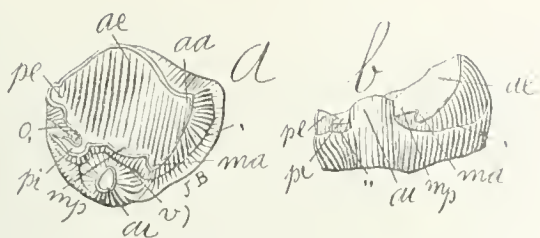 ae
aa
a
pe
o,
pi
mp
au
v)
5B
ma
'
b
ae
pe
pi
"
au
mp
ma
'